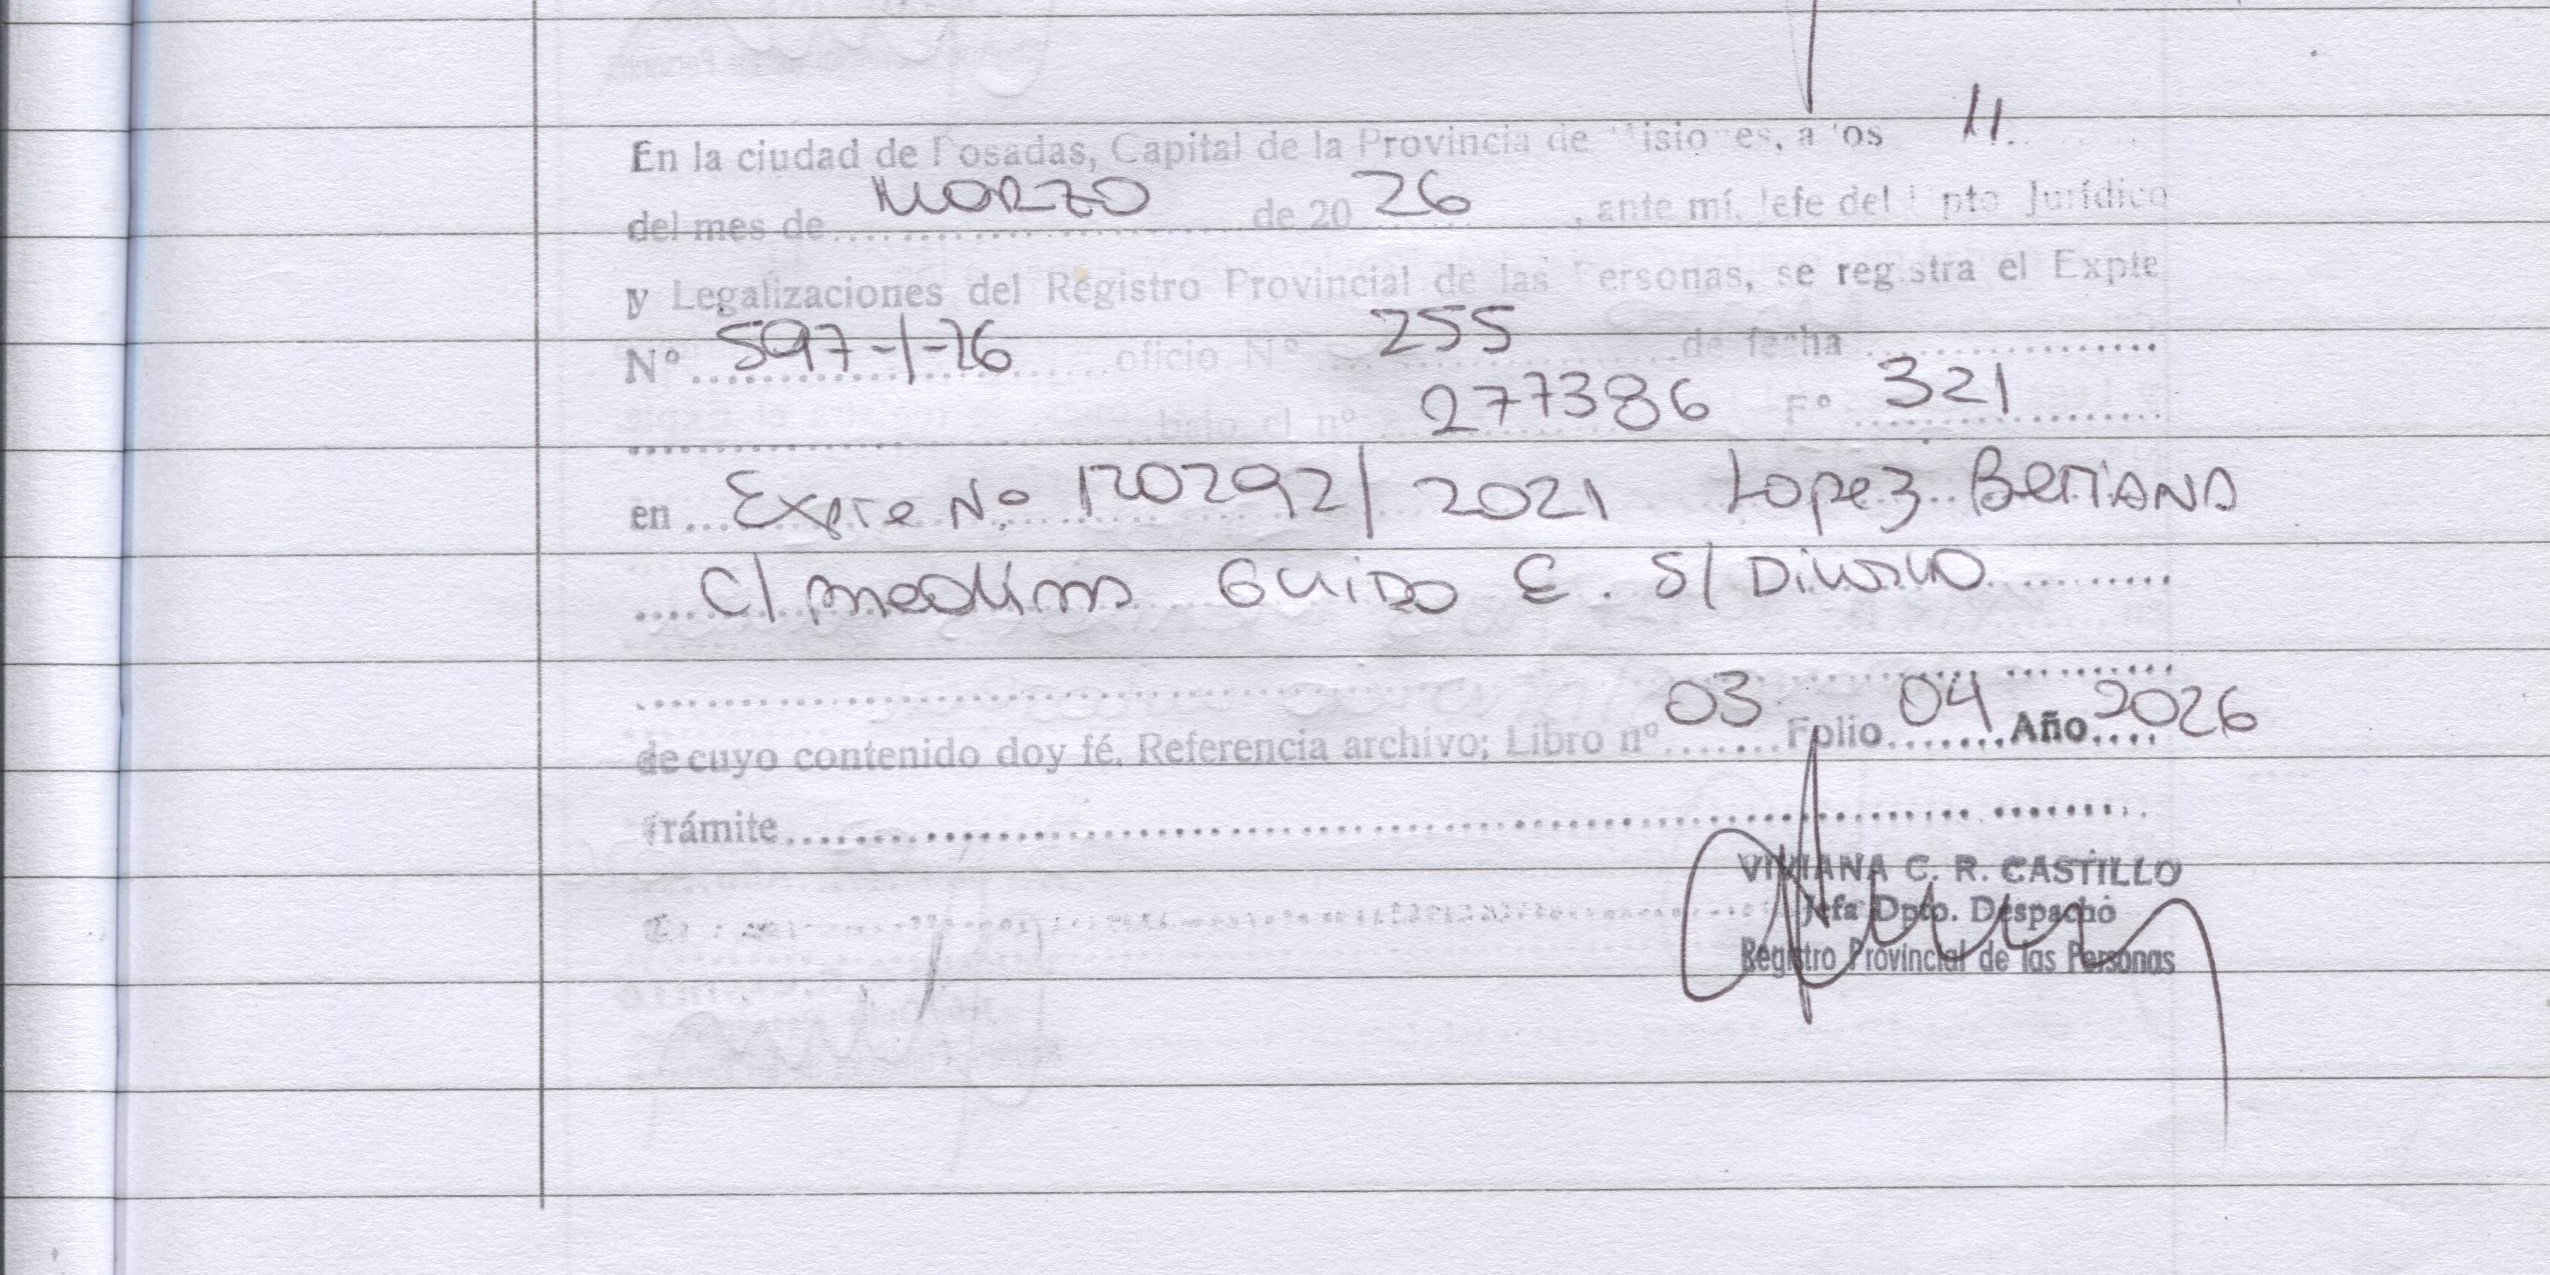 En la ciudad de Posadas, Capital de la Provincia de Misiones, a los 11.
del mes de MARZO de 20 26, ante mí, Jefe del Dpto Jurídico
y Legalizaciones del Registro Provincial de las Personas, se registra el Expte
Nº 597-1-26 oficio Nº 255 de fecha
bajo el nº 277386 Fº 321
en Expte Nº 120292/2021 Lopez
C/ Medina Guido E. S/ Divorcio
de cuyo contenido doy fé. Referencia archivo; Libro nº 03 Folio 04 Año 2026
Trámite
VIVIANA C. R. CASTILLO
Jefa Dpto. Despacho
Registro Provincial de las Personas